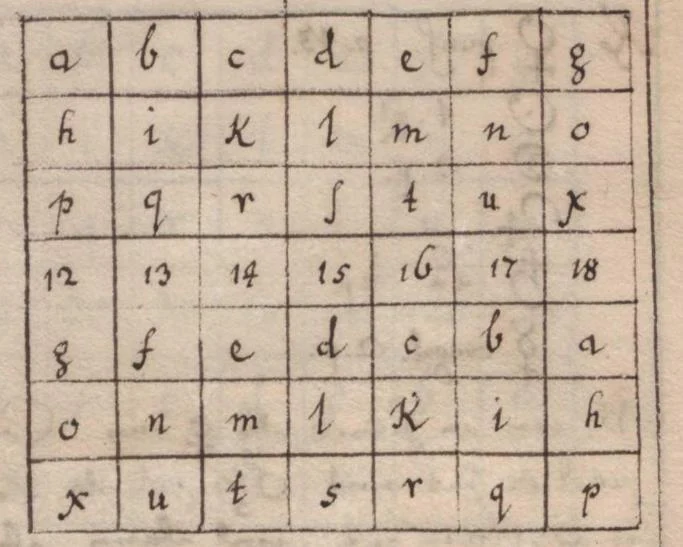 a b c d e f g
h i K l m n o
p q r ſ t u x
12 13 14 15 16 17 18
g f e d c b a
o n m l K i h
x u t s r q p